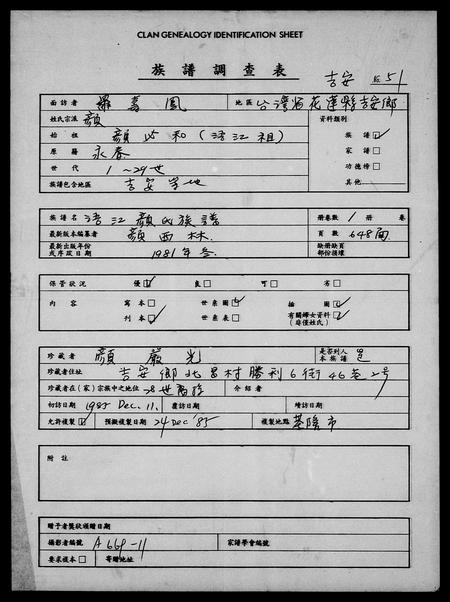 CLAN GENEALOGY IDENTIFICATION SHEET
族譜調查表
吉安 51
面訪者 羅萬鳳 地區 台灣省花蓮縣吉安鄉
姓氏宗派 顏 資料類別
始祖 顏以和(浯江祖) 族譜☑
原籍 永春 家譜□
世代 1~29世 功德榜□
族譜包含地區 吉安等地 其他
族譜名 浯江顏氏族譜 冊卷數 1 冊 卷
最新版本編纂者 顏西林 頁數 648面
最新出版年份或序跋日期 1981年冬 缺冊缺頁部份損壞
保管狀況 優☑ 良□ 可□ 劣□
內容 寫本□ 世系圖☑ 插圖☑
刊本☑ 世系表□ 有關婦女資料☑(母僅姓氏)
珍藏者 顏嚴光 是否列入本族譜 是
珍藏者住址 吉安鄉北昌村勝利6街46巷2號
珍藏者在(家)宗族中之地位 28世裔孫 介紹者
初訪日期 1985 Dec. 11. 覆訪日期 續訪日期
允許複製☑ 預擬複製日期 24 Dec '85 複製地點 基隆市
附註
贈予者獎狀頒贈日期
攝影者編號 A 669-11 家譜學會編號
要求複本□ 寄贈地址